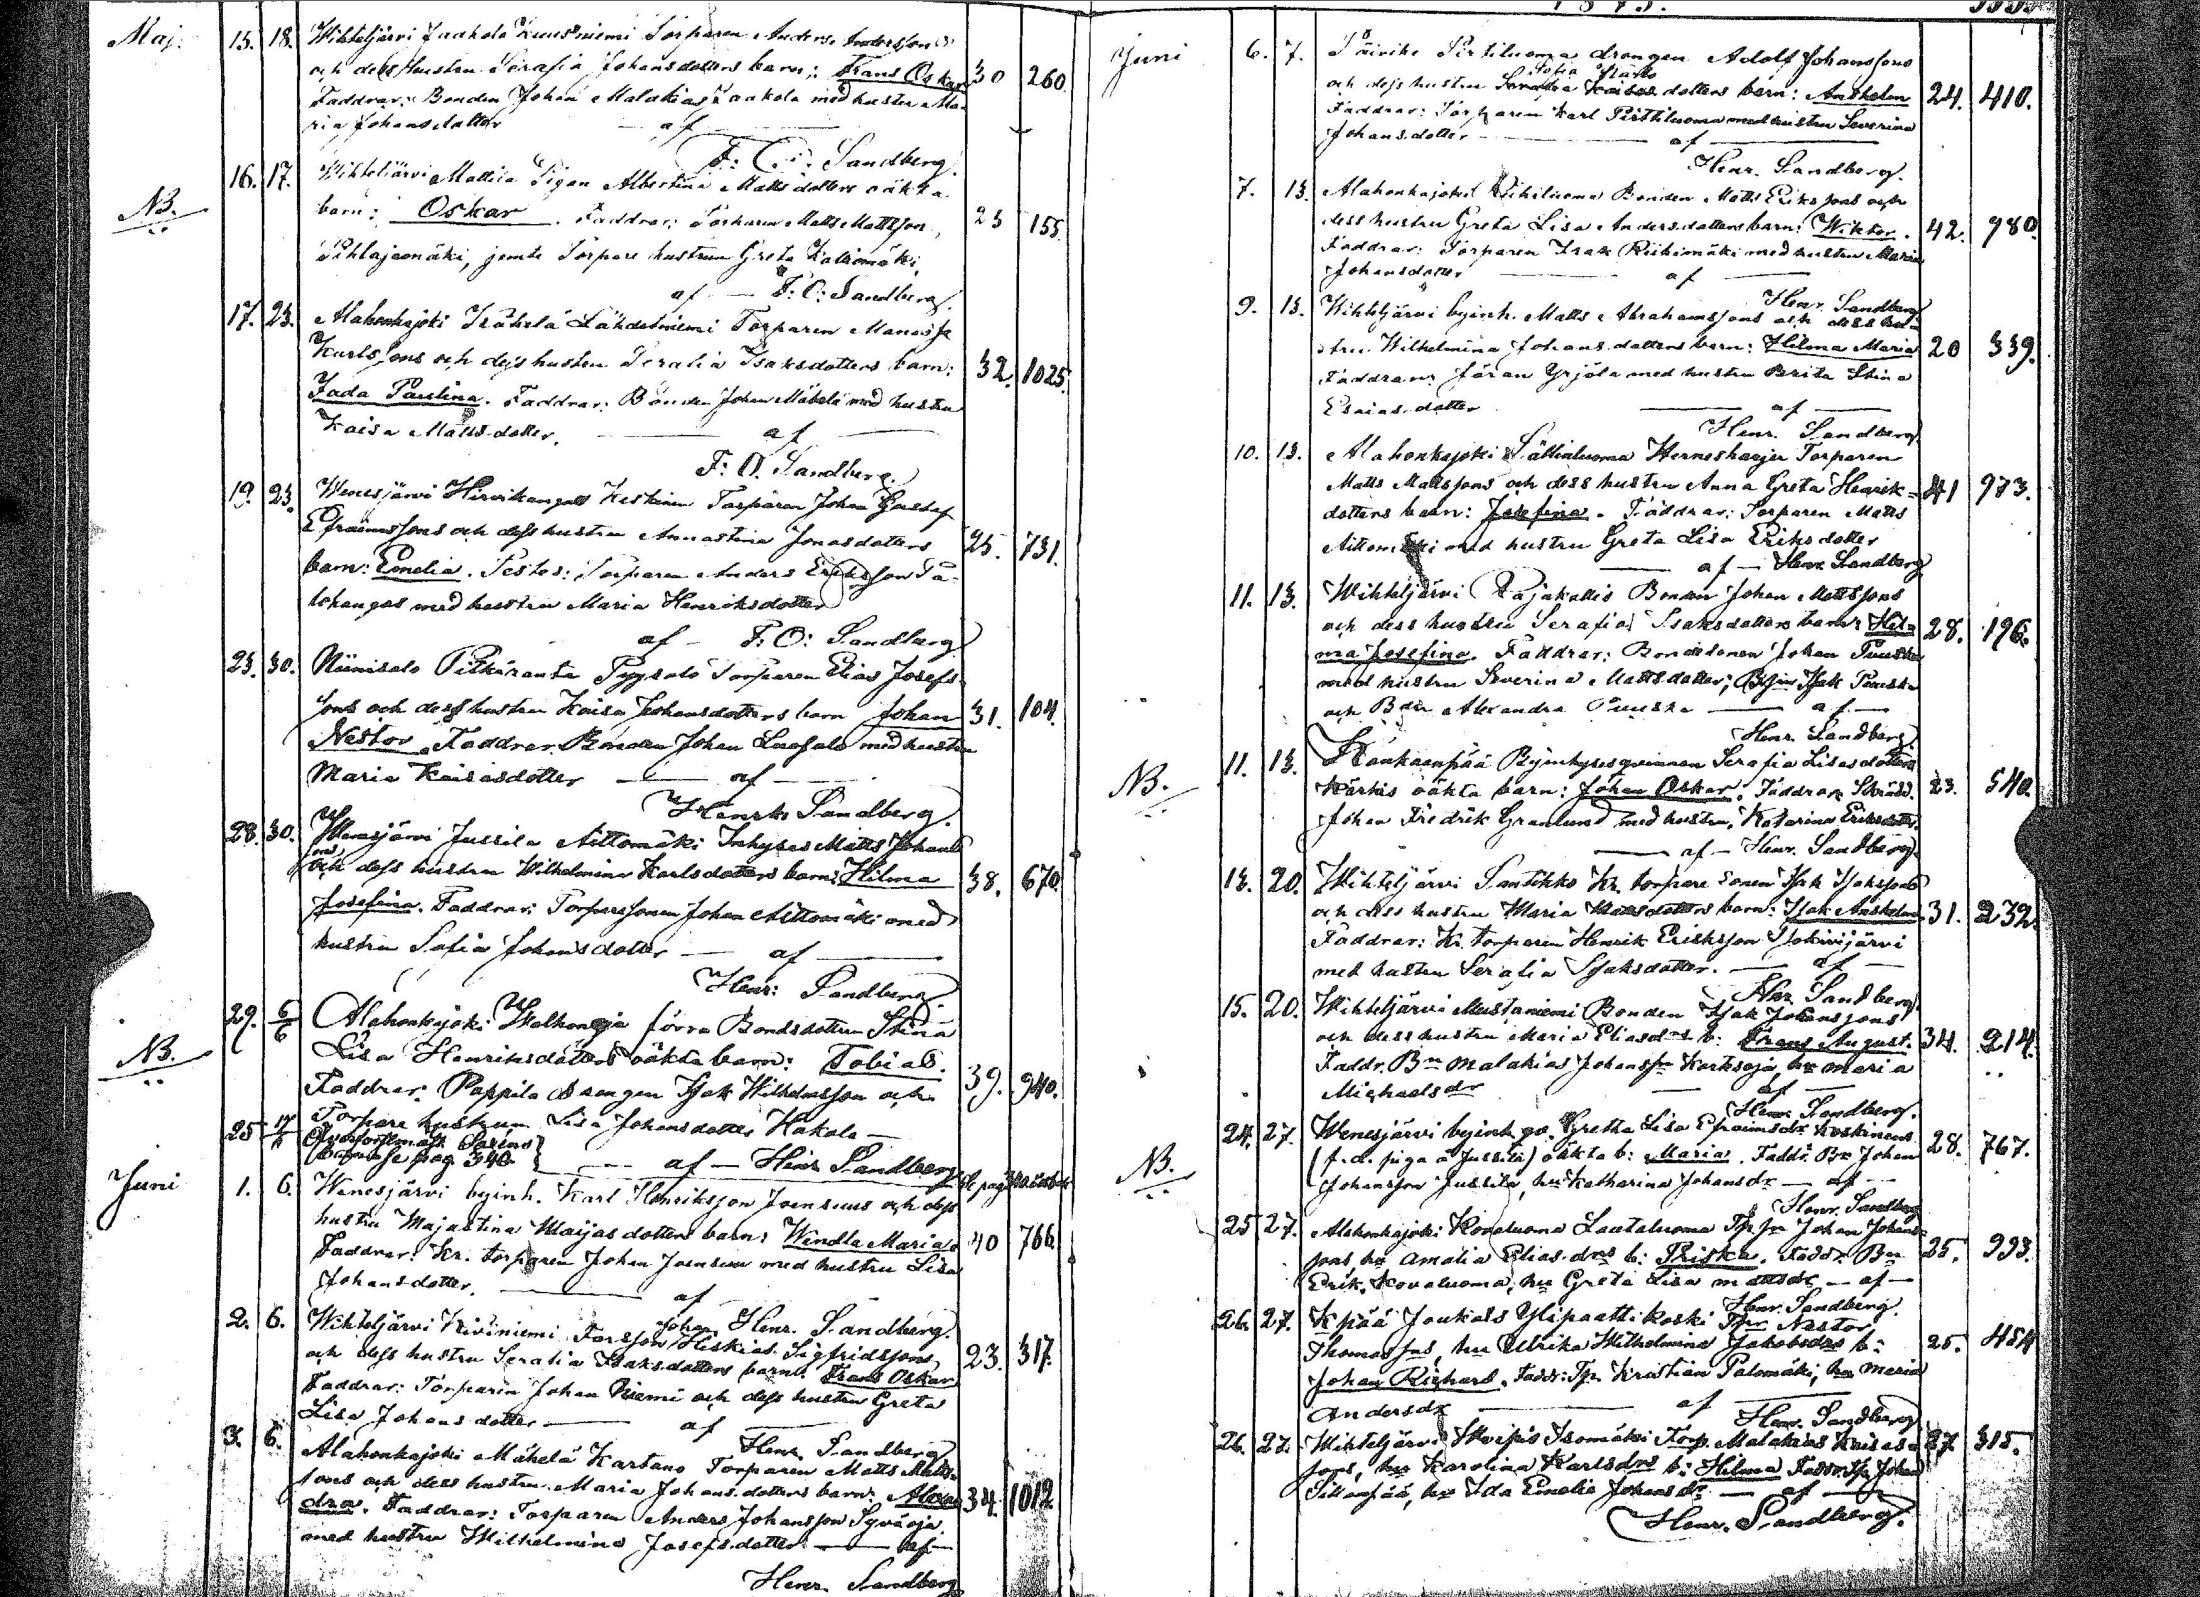 Maj. 15. 18. Wihteljärvi Jaakola Kuusniemi Torparen Anders Anderssons
och dess hustru Serafia Johansdotters barn: Frans Oskar 30 260.
Faddrar: Bonden Johan Malakias Jaakola med hustru Ma-
ria Johansdotter — af —
F: O: Sandberg.
NB. 16. 17. Wihteljärvi Mattila Pigan Albertina Mattsdotters oäkta
barn: Oskar. Faddrar: Torparen Matts Mattsson, 23 155.
Pihlajamäki, jemte Torpare hustrun Greta Kallomäki,
af — F: O: Sandberg.
17. 23. Alahonkajoki Isäkelä Lähdeniemi Torparen Manasse
Karlssons och dess hustru Serafia Isaksdotters barn: 32. 1025.
Jada Paulina. Faddrar: Bonden Johan Mäkelä med hustru
Kaisa Mattsdotter. — af —
F: O. Sandberg.
19. 23. Wenesjärvi Hirvikangas Keskinen Torparen Johan Gustaf
Efraimssons och dess hustru Annastina Jonasdotters 25. 731.
barn: Emelia. Testes: Torparen Anders Eriksson Pa-
lokangas med hustru Maria Henriksdotter
af — F: O: Sandberg
23. 30. Niinisalo Pitkäranta Pyysalo Torparen Elias Josefs-
sons och dess hustru Kaisa Johansdotters barn Johan 31. 104.
Nestor. Faddrar. Bonden Johan Laasalo med hustru
Maria Kaisasdotter — af —
Henrik Sandberg.
28. 30. Wenesjärvi Jussila Aittomäki Inhyses Matts Johans
sons och dess hustru Wilhelmina Karlsdotters barn: Hilma 38. 670.
Josefina. Faddrar: Torparesonen Johan Aittomäki med
hustru Sofia Johansdotter — af —
Henr: Sandberg.
NB. 29. 6/6 Alahonkajoki Walkonoja förra Bondsdottren Stina
Lisa Henriksdotters oäkta barn: Tobias.
Faddrar. Pappila drängen Isak Wilhelmsson och 39. 940.
Torpare hustrun Lisa Johansdotter Hakola —
25 — af — Henr. Sandberg
pag. 340
Juni 1. 6. Wenesjärvi byinh. Karl Henriksson Joensuus och dess
hustru Majastina Maijasdotters barn: Wendla Maria. 40 766
Faddrar: Kr. torparen Johan Joensuu med hustru Lisa
Johansdotter. — af —
Henr. Sandberg.
2. 6. Wihteljärvi Kiviniemi Torpson Johan Hiskias Sigfridssons
och dess hustru Serafia Isaksdotters barn: Frans Oskar 23. 317.
Faddrar: Torparen Johan Niemi och dess hustru Greta
Lisa Johansdotter — af —
Henr. Sandberg
3. 6. Alahonkajoki Mäkelä Kartano Torparen Matts Matts-
sons och dess hustru Maria Johansdotters barn: Alexan 34. 1012.
dra. Faddrar: Torparen Anders Johansson Syväoja
med hustru Wilhelmina Josefsdotter — af —
Henr. Sandberg
Juni 6. 7. Pirtiluoma drängen Adolf Johanssons
och dess hustru Kaisasdotters barn: Anshelm 24. 410.
Faddrar: Torparen Karl Pirttiluoma med hustru Severina
Johansdotter — af —
Henr. Sandberg.
7. 13. Alahonkajoki Riihiluoma Bonden Matts Erikssons och
dess hustru Greta Lisa Andersdotters barn: Wiktor. 42. 980.
Faddrar: Torparen Isak Riihimäki med hustru Maria
Johansdotter — af —
Henr. Sandberg
9. 13. Wihteljärvi byinh. Matts Abrahamssons och dess hu-
stru Wilhelmina Johansdotters barn: Hilma Maria 20 339.
Faddrar: Jöran Yrjölä med hustru Brita Stina
Esaiasdotter — af —
Henr. Sandberg
10. 13. Alahonkajoki Sällinluoma Herneskarju Torparen
Matts Matssons och dess hustru Anna Greta Henrik- 41 973.
dotters barn: Josefina. Faddrar: Torparen Matts
Aittomäki med hustru Greta Lisa Eriksdotter
— af — Henr. Sandberg
11. 13. Wihteljärvi Rajakallio Bonden Johan Mattssons
och dess hustru Serafia Isaksdotters barn: Hil- 28. 196.
ma Josefina. Faddrar: Bondesonen Johan Puuska
med hustru Severina Mattsdotter; Isak Puuska
och Alexandra Puuska — af —
Henr. Sandberg.
NB. 11. 13. Kankaanpää Byinhysesqvinnan Serafia Lisasdotters
Kärkis oäkta barn: Johan Oskar. Faddrar: Skrädd. 23. 540.
Johan Fredrik Granlund med hustru Katarina Eriksdotter.
— af — Henr. Sandberg.
13. 20. Wihteljärvi Santikko Kr. torpare sonen Isak Isakssons
och dess hustru Maria Mattsdotters barn: Isak Anshelm. 31. 232.
Faddrar: Kr. torparen Henrik Eriksson Isokivijärvi
med hustru Serafia Isaksdotter. — af —
Henr. Sandberg
15. 20. Wihteljärvi Mustaniemi Bonden Isak Johanssons
och dess hustru Maria Eliasdrs b: Frans August. 34. 214.
Faddr. Bn Malakias Johansson Karhuoja, hu Maria
Michaelsdr — af —
Henr. Sandberg.
NB. 24. 27. Wenesjärvi byinh. qv. Gretha Lisa Efraimsdr Koskinens
(f.d. piga å Jussila) oäkta b: Maria. Faddr. Bn Johan 28. 767.
Johansson Jussila, hu Katharina Johansdr — af —
Henr. Sandberg
25 27. Alahonkajoki Kovaluoma Lautaluoma Johan Johans-
sons, hu Amalia Eliasdrs b: Priska. Faddr. Bn 25. 993.
Erik Kovaluoma, hu Greta Lisa Mattsdr — af —
Henr. Sandberg.
26. 27. Kpää Joukais Ylipaattikoski Tpr Nestor
Thomassons, hu Ulrika Wilhelmina Jakobsdrs b: 25. 454
Johan Richard. Faddr: Tpr Kristian Palomäki, hu Maria
Andersdr — af —
Henr. Sandberg
26. 27. Wihteljärvi Isomäki Torp. Malakias Kaisas-
sons, hu Karolina Karlsdrs b: Hilma Faddr. Tpr Johan 27 315.
hu Ida Emelia Johansdr — af —
Henr. Sandberg.